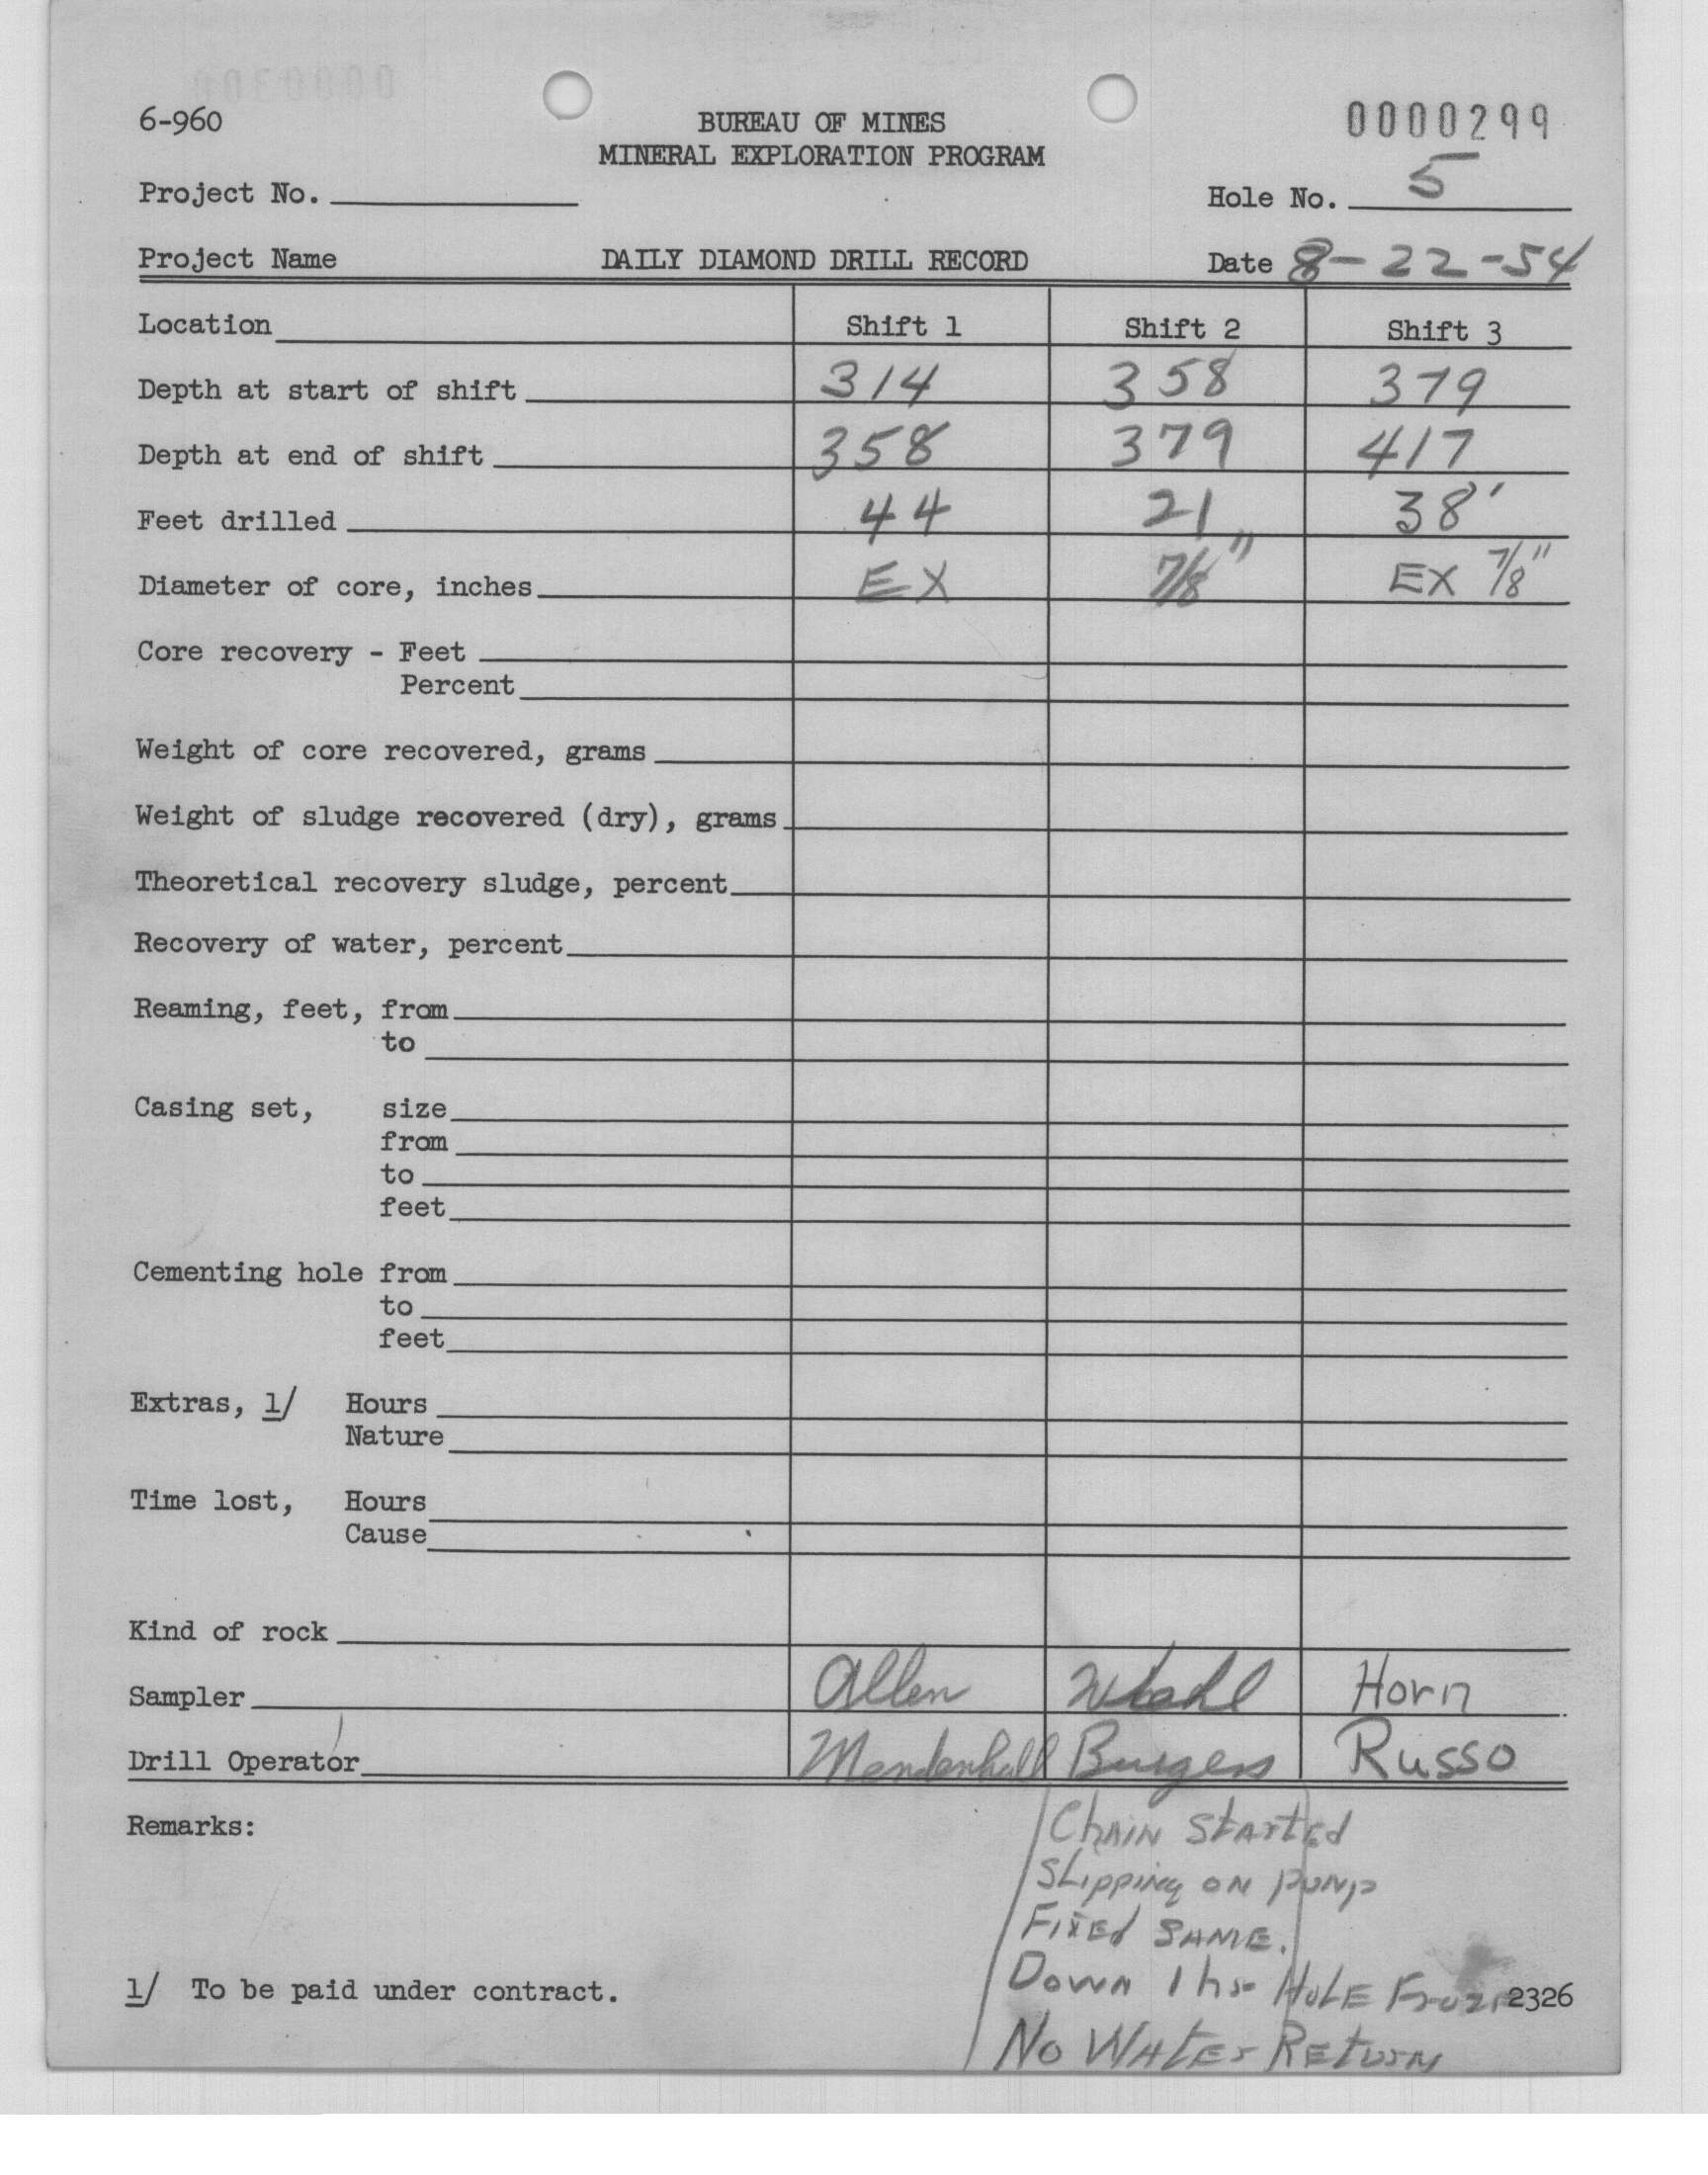 6-960
BUREAU OF MINES
0000299
MINERAL EXPLORATION PROGRAM
Project No.
Hole No. 5
Project Name
DAILY DIAMOND DRILL RECORD
Date 8-22-54
Location Shift 1 Shift 2 Shift 3
Depth at start of shift 314 358 379
Depth at end of shift 358 379 417
Feet drilled 44 21 38'
Diameter of core, inches EX 7/8" EX 7/8"
Core recovery - Feet
Percent
Weight of core recovered, grams
Weight of sludge recovered (dry), grams
Theoretical recovery sludge, percent
Recovery of water, percent
Reaming, feet, from
to
Casing set, size
from
to
feet
Cementing hole from
to
feet
Extras, 1/ Hours
Nature
Time lost, Hours
Cause
Kind of rock
Sampler Allen Horn
Drill Operator Mendenhall Burgess Russo
Remarks:
Chain Started
Slipping on pump
Fixed same.
Down 1 hr Hole
No Water Return
1/ To be paid under contract.
2326